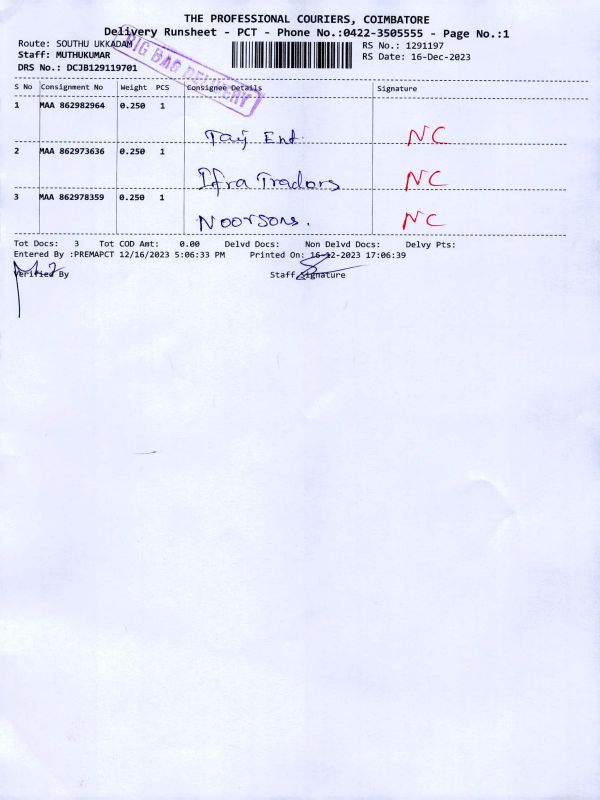 THE PROFESSIONAL COURIERS, COIMBATORE
Delivery Runsheet - PCT - Phone No.:0422-3505555 - Page No.:1
Route: SOUTHU UKKADAM
Staff: MUTHUKUMAR
DRS No.: DCJB129119701
RS No.: 1291197
RS Date: 16-Dec-2023
BIG BAG DELIVERY
S No Consignment No Weight PCS Consignee Details Signature
1 MAA 862982964 0.250 1
Taj Ent. NC
2 MAA 862973636 0.250 1
Ifra Tradors NC
3 MAA 862978359 0.250 1
Noorsons. NC
Tot Docs: 3 Tot COD Amt: 0.00 Delvd Docs: Non Delvd Docs: Delvy Pts:
Entered By :PREMAPCT 12/16/2023 5:06:33 PM Printed On: 16-12-2023 17:06:39
Verified By Staff Signature